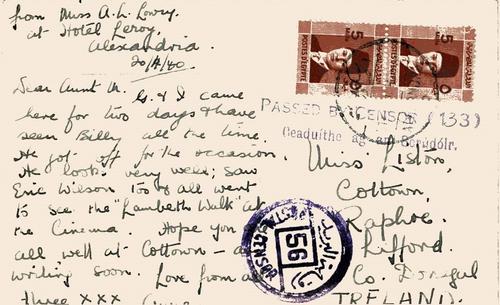 from Miss A. L. Lowry.
at Hotel Leroy,
Alexandria.
20/4/40
Dear Aunt M. G. & I came
here for two days & have
seen Billy all the time.
He got off for the occasion.
He looks very well; saw
Eric Wilson too & all went
to see the "Lambeth Walk" at
the Cinema. Hope you
all well at Cottown –
writing soon. Love from
three xxx
POSTES D'EGYPTE
5
POSTES D'EGYPTE
5
PASSED BY CENSOR (133)
Ceaduithe ag an Scrúdóir.
Miss Liston,
Cottown,
Raphoe.
Lifford.
Co. Donegal
IRELAND.
56